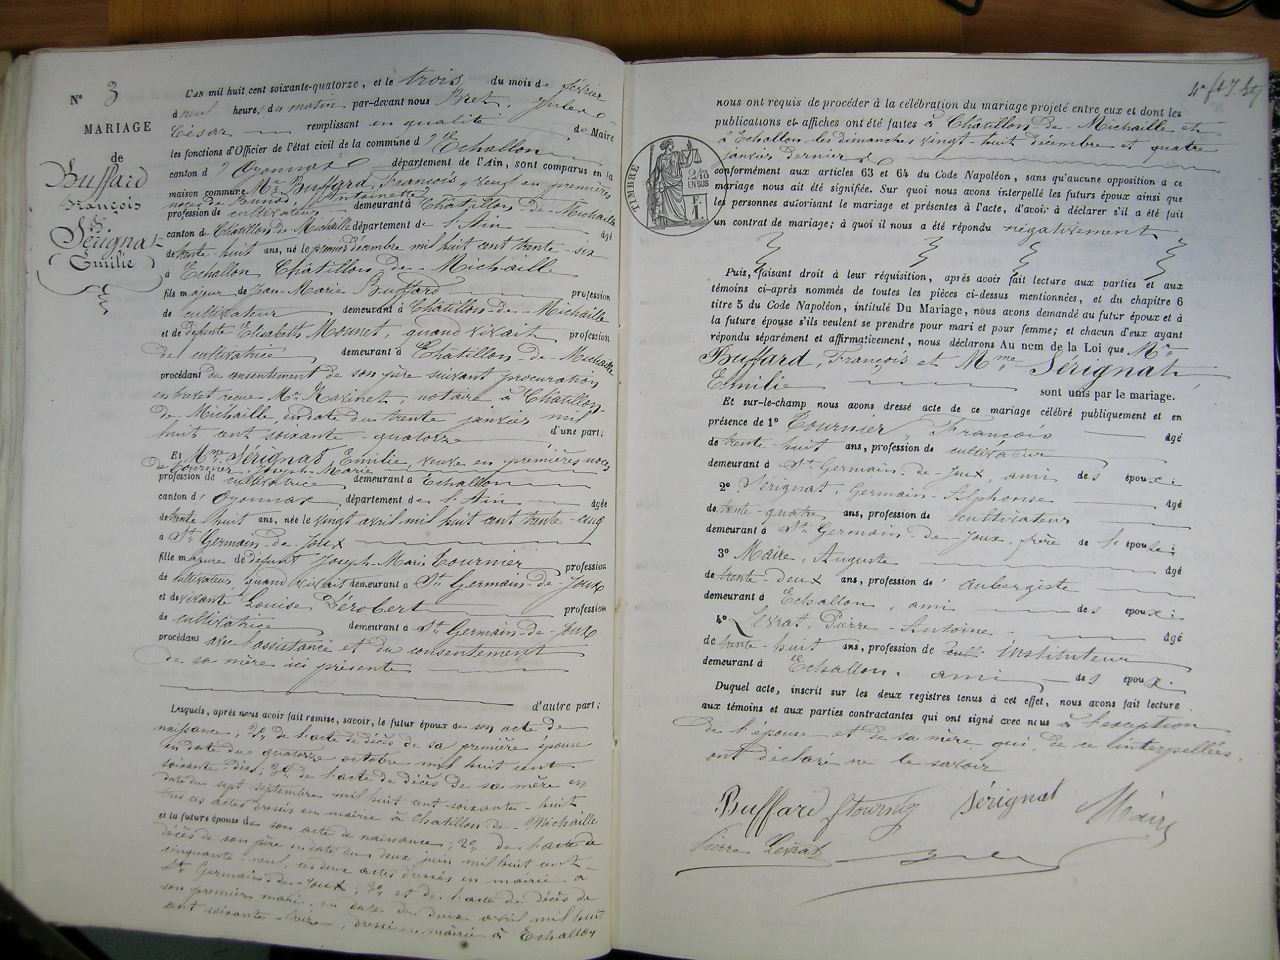 N° 3
MARIAGE
de
Buffard
François
&
Sérignat
Emilie
L'an mil huit cent soixante-quatorze, et le trois du mois de février
à neuf heures du matin par-devant nous Bret, Jules
César remplissant en qualité de Maire
les fonctions d'Officier de l'état civil de la commune d'Echallon
canton d'Oyonnax département de l'Ain, sont comparus en la
maison commune Mr Buffard, François, veuf en premières
noces de Antoinette
profession de cultivateur demeurant à Châtillon de Michaille
canton de Châtillon de Michaille département de l'Ain âgé
de trente huit ans, né le premier décembre mil huit cent trente-six
à Echallon Châtillon de Michaille
fils majeur de Jean-Marie Buffard profession
de cultivateur demeurant à Châtillon de Michaille
et de défunte Elisabeth Mounet, quand vivait profession
de cultivatrice demeurant à Châtillon de Michaille
procédant du consentement de son père suivant procuration
en brevet reçue Me notaire à Châtillon
de Michaille en date du trente janvier mil
huit cent soixante-quatorze d'une part;
Et Mme Sérignat Emilie, veuve en premières noces
de Tournier Joseph-Marie
profession de cultivatrice demeurant à Echallon
canton d'Oyonnax département de l'Ain âgée
de trente huit ans, née le vingt avril mil huit cent trente-cinq
à St Germain-de-Joux
fille majeure de défunt Joseph-Marie Tournier profession
de cultivateur, quand vivait demeurant à St Germain-de-Joux
et de vivante Louise Dérobert profession
de cultivatrice demeurant à St Germain-de-Joux
procédant avec l'assistance et du consentement
de sa mère ici présente
d'autre part;
Lesquels, après nous avoir fait remise, savoir, le futur époux de son acte de
naissance, 2° de l'acte de décès de sa première épouse
en date du quatorze octobre mil huit cent
soixante-dix, 3° de l'acte de décès de sa mère en
date du sept septembre mil huit cent soixante-huit
tous ces actes dressés en mairie à Châtillon-de-Michaille
et la future épouse de son acte de naissance, 2° de l'acte de
décès de son père en date du deux juin mil huit cent
cinquante-neuf, ces deux actes dressés en mairie à
St Germain-de-Joux, 3° et de l'acte de décès de
son premier mari, en date du deux avril mil huit
cent soixante-treize, dressé en mairie à Echallon
nous ont requis de procéder à la célébration du mariage projeté entre eux et dont les
publications et affiches ont été faites à Châtillon-de-Michaille et
à Echallon les dimanches vingt-huit décembre et quatre
janvier derniers
conformément aux articles 63 et 64 du Code Napoléon, sans qu'aucune opposition à ce
mariage nous ait été signifiée. Sur quoi nous avons interpellé les futurs époux ainsi que
les personnes autorisant le mariage et présentes à l'acte, d'avoir à déclarer s'il a été fait
un contrat de mariage; à quoi il nous a été répondu négativement
TIMBRE
Puis, faisant droit à leur réquisition, après avoir fait lecture aux parties et aux
témoins ci-après nommés de toutes les pièces ci-dessus mentionnées, et du chapitre 6
titre 5 du Code Napoléon, intitulé Du Mariage, nous avons demandé au futur époux et à
la future épouse s'ils veulent se prendre pour mari et pour femme; et chacun d'eux ayant
répondu séparément et affirmativement, nous déclarons Au nom de la Loi que Mr
Buffard, François et Mme Sérignat,
Emilie sont unis par le mariage.
Et sur-le-champ nous avons dressé acte de ce mariage célébré publiquement et en
présence de 1° Tournier, François âgé
de trente-huit ans, profession de cultivateur
demeurant à St Germain-de-Joux, ami des époux;
2° Sérignat, Germain-Alphonse âgé
de trente-quatre ans, profession de cultivateur
demeurant à St Germain de Joux, frère de l'épouse;
3° Maire, Auguste âgé
de trente-deux ans, profession d'aubergiste
demeurant à Echallon, ami des époux;
4° Levrat, Pierre-Antoine âgé
de trente-huit ans, profession de cult. Instituteur
demeurant à Echallon, ami des époux.
Duquel acte, inscrit sur les deux registres tenus à cet effet, nous avons fait lecture
aux témoins et aux parties contractantes qui ont signé avec nous à l'exception
de l'épouse et de sa mère qui, de ce interpellées,
ont déclaré ne le savoir
Buffard ftournier Sérignat Maire
Pierre Levrat